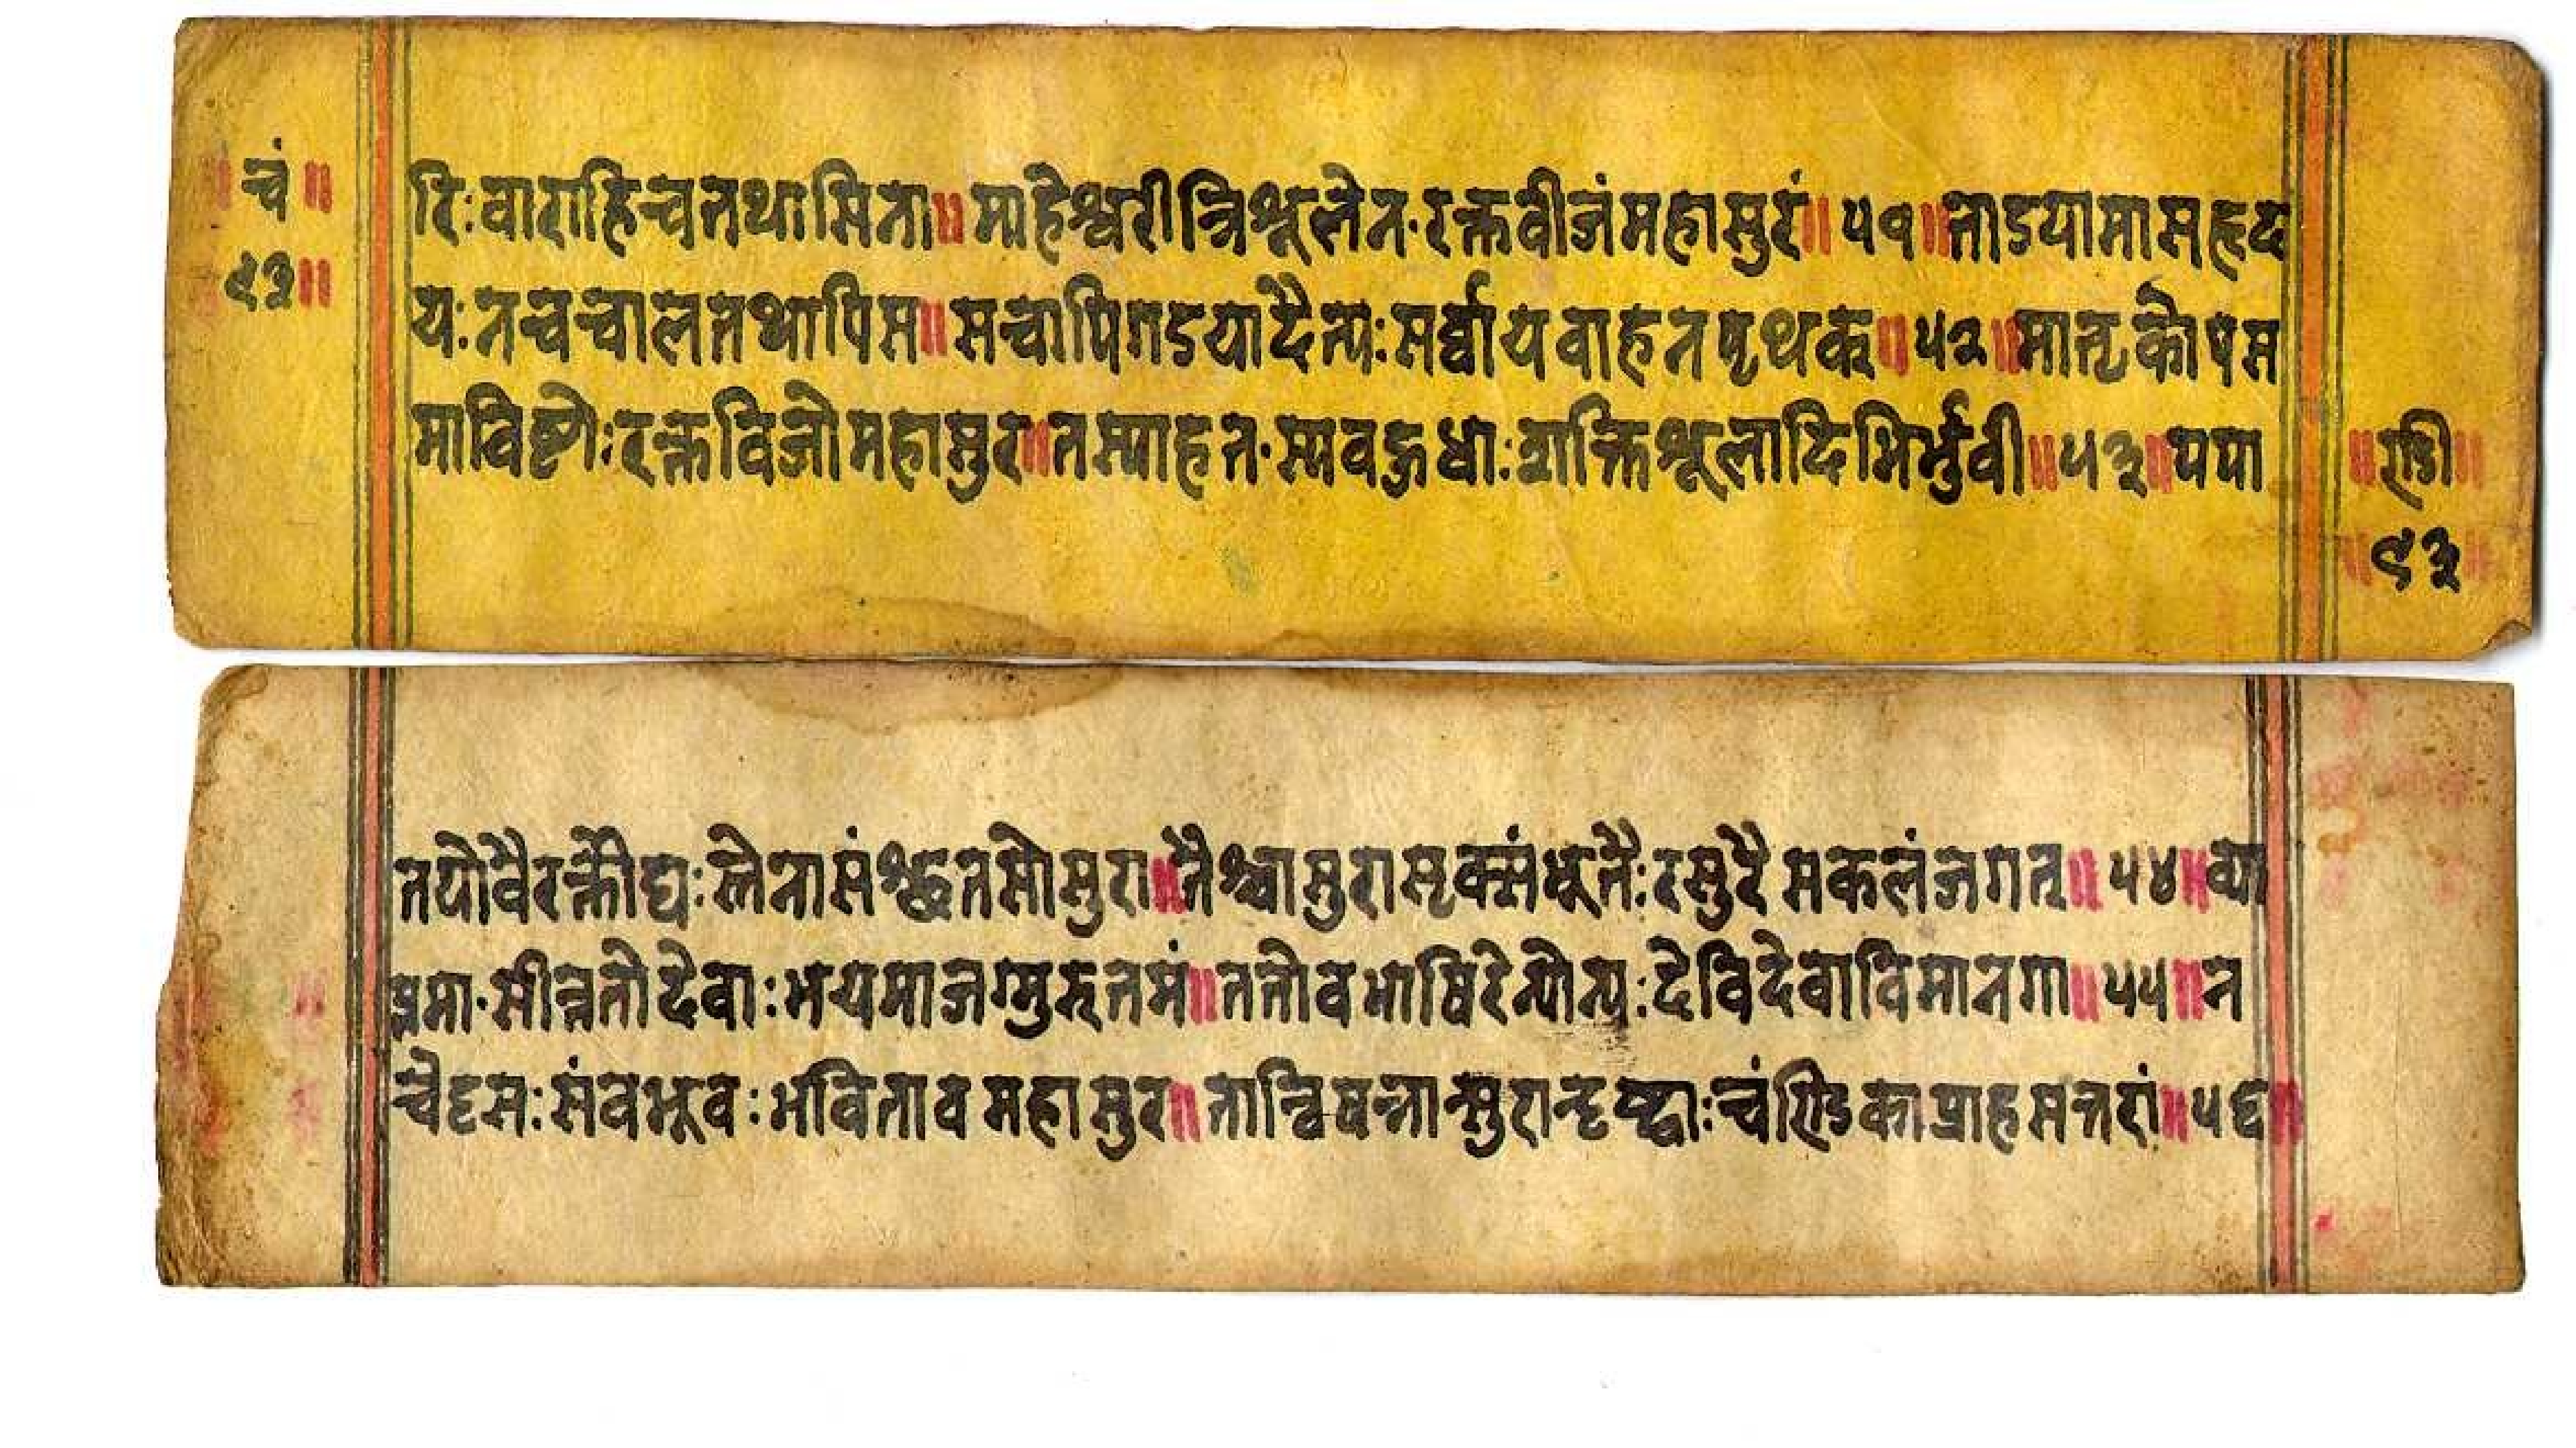 चं
९३॥
रि:वाराहिचतथासिना॥माहेश्वरीत्रिशूलेन·रक्तवीजंमहासुरं॥५१॥ताडयामासहृद
य:नचचालतथापिस॥सचापिगडयादैत्य:सर्वायवाहनपृथक॥५२॥मातृकोपस
माविष्टो:रक्तविजोमहासुर॥तस्याहत·स्यवहुधा:शक्तिशूलादिभिर्भुवी॥५३॥पपा
॥ण्डी॥
९३
तयोवैरक्तौद्य:स्तेनासंश्छतसोसुरा॥तैश्चासुरासृक्संभूतै:रसुरैसकलंजगत्॥५४॥व्या
प्तमा·सीत्ततोदेवा:भयमाजग्मुरुत्तमं॥ततोवभाषिरेन्योन्य:देविदेवाविमानगा॥५५॥न
चेदृस:संवभूव:भवितावमहासुर॥तान्विषन्नान्सुरान्दृष्ट्वा:चंण्डिकाप्राहसत्तरां॥५६॥